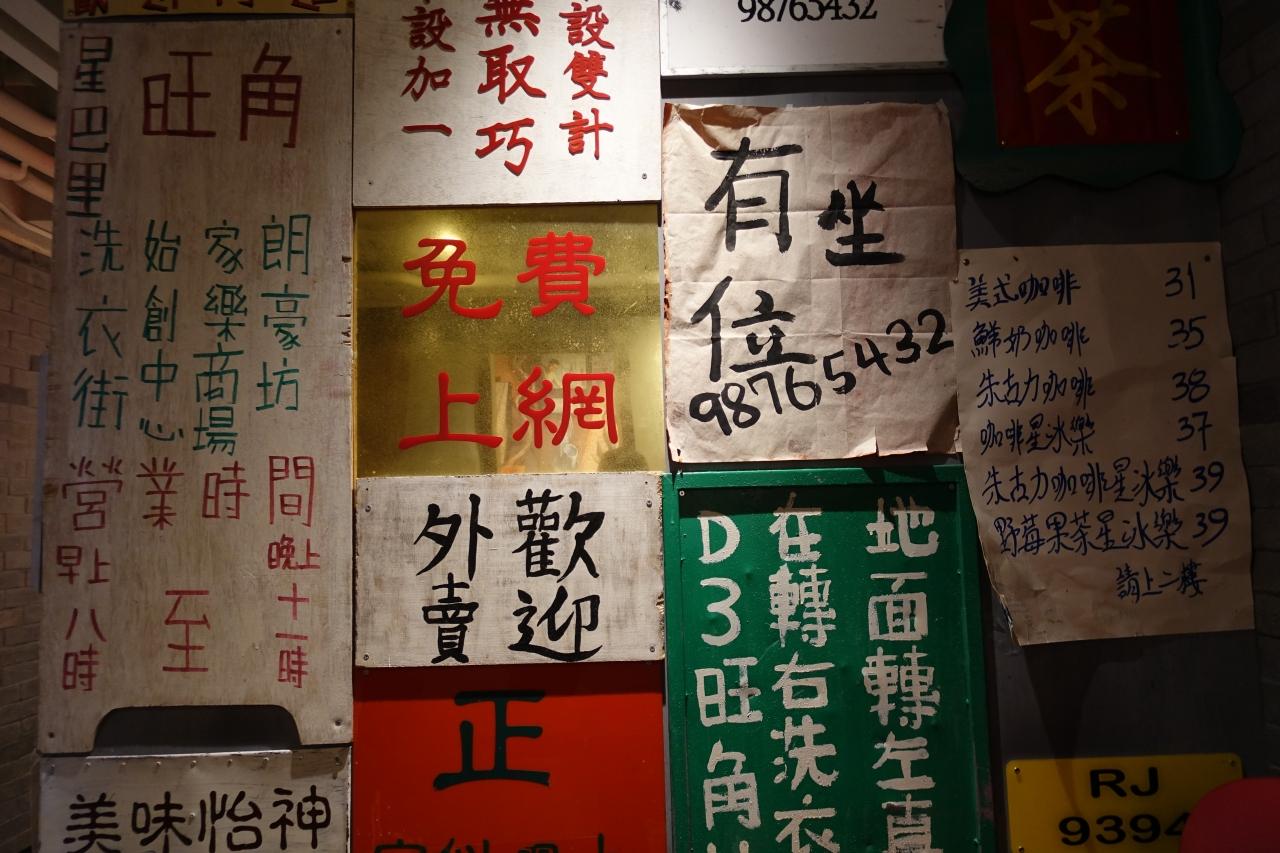 星巴里
旺角
洗衣街
始創中心
家樂商場
朗豪坊
營業時間
早上八時
至
晚上十一時
美味怡神
設雙計
無取巧
設加一
免費
上網
歡迎
外賣
正
98765432
有坐
位
98765432
地面轉左直
在轉右洗衣
D3旺角
茶
美式咖啡 31
鮮奶咖啡 35
朱古力咖啡 38
咖啡星冰樂 37
朱古力咖啡星冰樂 39
野莓果茶星冰樂 39
請上二樓
RJ
9394